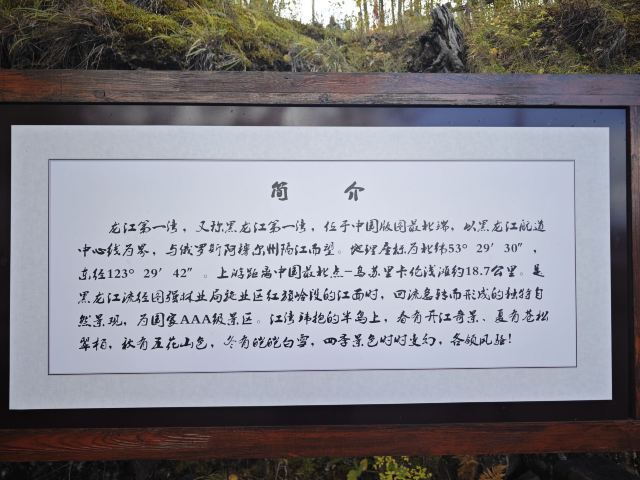 简 介
龙江第一湾，又称黑龙江第一湾，位于中国版图最北端，以黑龙江航道
中心线为界，与俄罗斯阿穆尔州隔江而望。地理座标为北纬53°29′30″，
东经123°29′42″。上游距离中国最北点-乌苏里卡伦浅滩约18.7公里。是
黑龙江流经图强林业局施业区红旗岭段的江面时，回流急转而形成的独特自
然景观，为国家AAA级景区。江湾环抱的半岛上，春有开江奇景、夏有苍松
翠柏，秋有五花山色，冬有皑皑白雪，四季景色时时变幻，各领风骚！